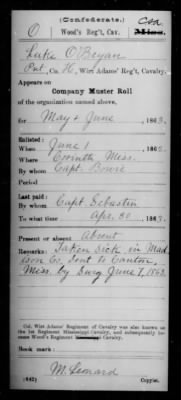 (Confederate.)
O Wood's Reg't, Cav. Csa. Miss.
Luke O'Bryan
Pvt, Co. H, Wirt Adams' Reg't, Cavalry.
Appears on
Company Muster Roll
of the organization named above,
for May & June, 1863.
Enlisted:
When June 1, 186
Where Corinth, Miss.
By whom Capt.
Period
Last paid:
By whom Capt. Sebastin
To what time Apr. 30, 1863.
Present or absent Absent
Remarks: Taken Sick in Mad
ison Co. Sent to Canton,
Miss. by Surg June 7, 1863.
Col. Wirt Adams' Regiment of Cavalry was also known as
the 1st Regiment Mississippi Cavalry, and subsequently be-
came Wood's Regiment Mississippi Cavalry.
Book mark:
(642) M. Leonard Copyist.